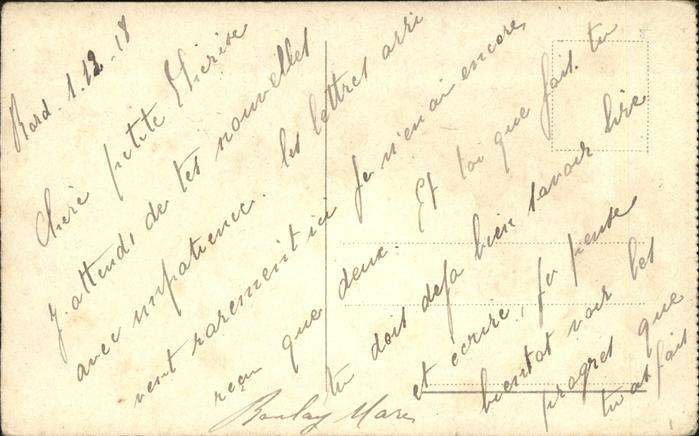 Bord. 1.12.18
Chère petite
J'attends de tes nouvelles
avec impatience. les lettres arri
vent rarement ici je n'en ai encore
reçu que deux. Et toi que fait tu
tu dois deja bien savoir lire
et écrire, je pense
bientot voir les
progres que
tu as fait